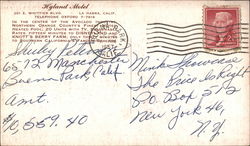 Hyland Motel
301 E. WHITTIER BLVD. LA HABRA, CALIF.
TELEPHONE OXFORD 7-7914
IN THE CENTER OF THE AVOCADO
NORTHERN ORANGE COUNTY'S FINEST
HEATED POOL, 20 UNITS WITH
RATES. FIFTEEN MINUTES TO DISNEYLAND AND
KNOTT'S BERRY FARM, ONLY MINUTES
TO SOUTHERN CALIFORNIA
Shirley
6572 Manchester
Buena Park Calif.
Amt.
$10,559.40
Mink Showcase
The Price Is Right
P.O. Box 512
New York 46,
N.Y.